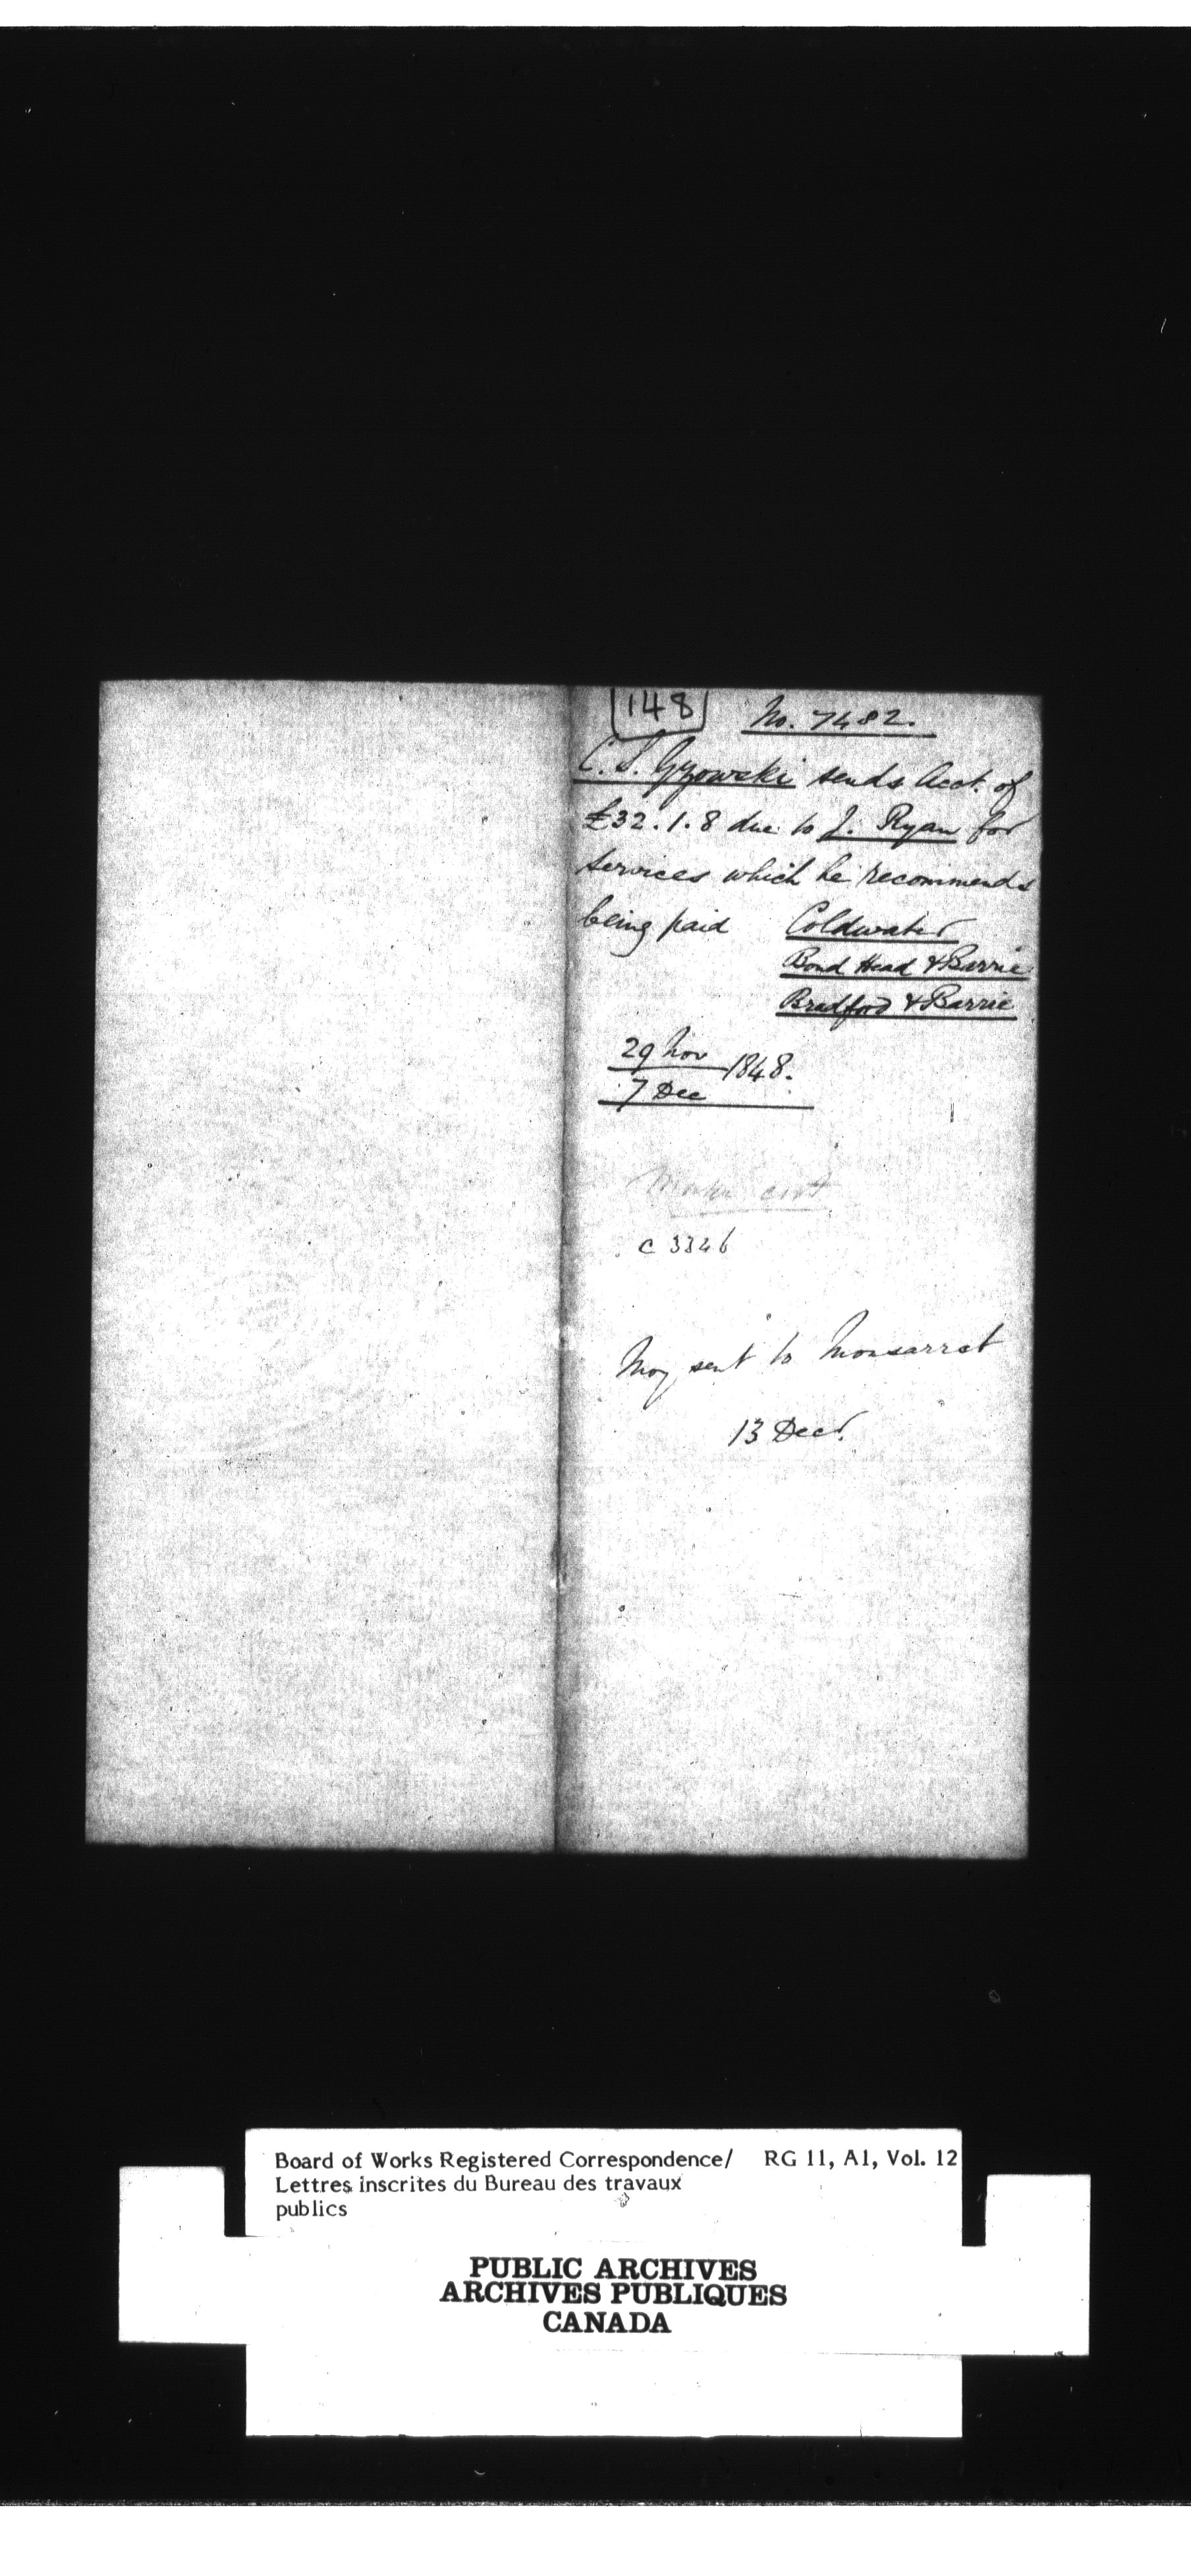 148 No. 7482.
C. S. Gzowski sends Acct. of
£32.1.8 due to J. Ryan for
services which he recommends
being paid Coldwater
Bond Head & Barrie
Bradford & Barrie
29 Nov
1848.
7 Dec
Make cert
c 3346
sent to Monsarrat
13 Decr.
Board of Works Registered Correspondence/ RG 11, A1, Vol. 12
Lettres inscrites du Bureau des travaux
publics
PUBLIC ARCHIVES
ARCHIVES PUBLIQUES
CANADA